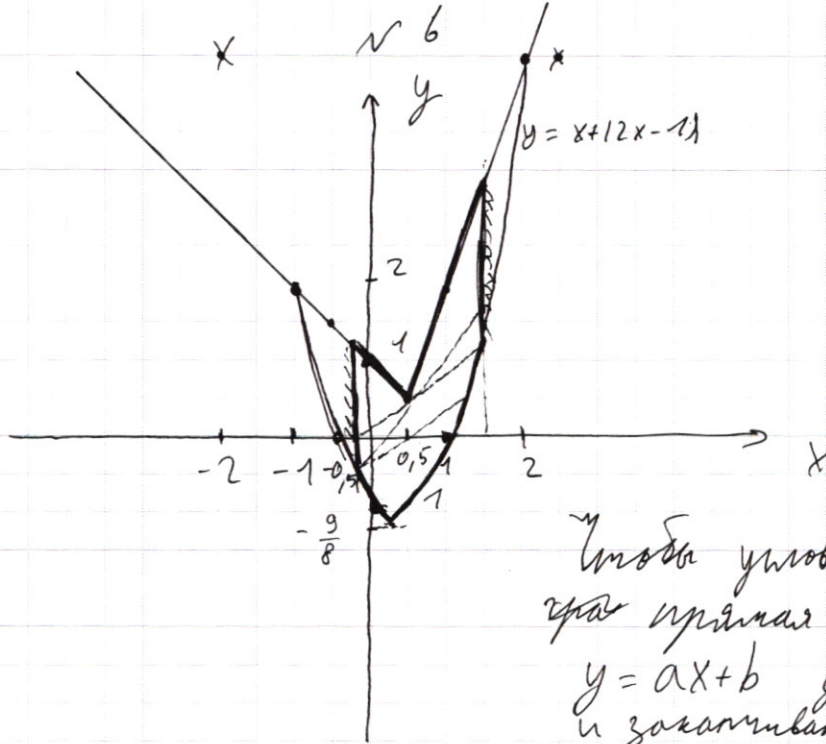 N 6
y
y = x+|2x-1|
2
1
-2 -1 -0,5 0,5 1 2
x
1
- 9/8
Чтобы услов
прямая
y = ax+b
и заканчива